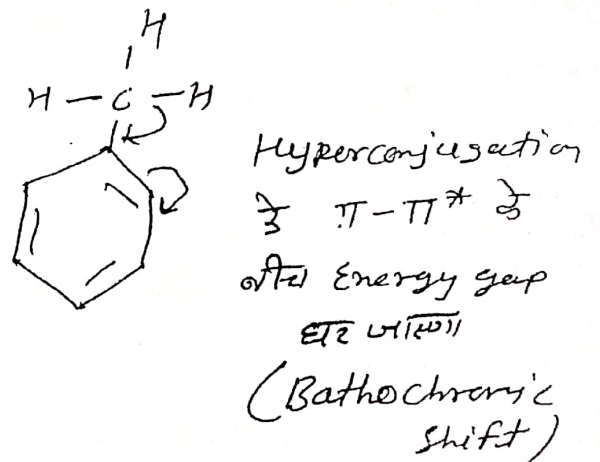 H
H - C - H
Hyperconjugation
से π-π* के
बीच Energy gap
घट जाएगा
(Bathochromic
shift)